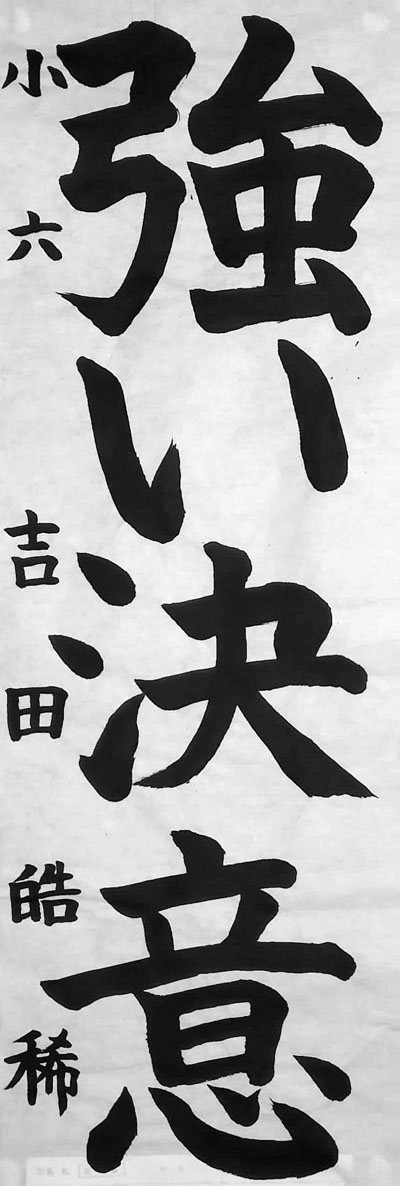 強い決意
小六 吉田皓稀